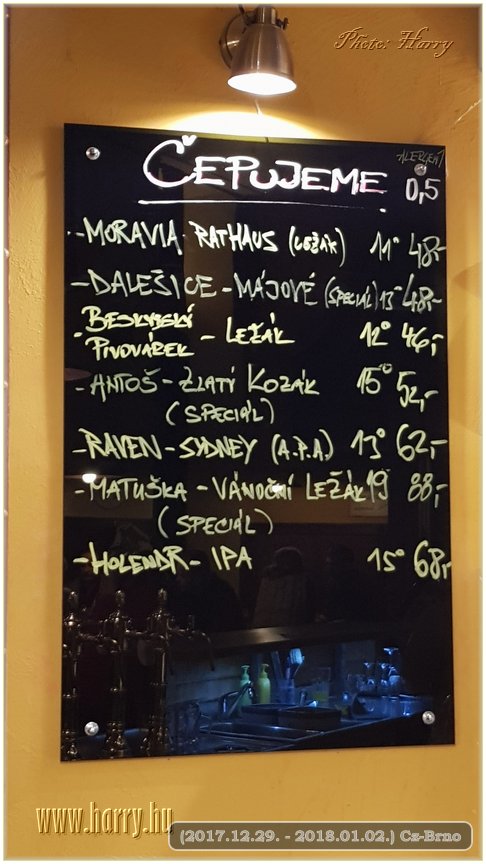 Photo: Harry
ALERGEN 1
ČEPUJEME 0,5
-MORAVIA-RATHAUS (LEŽÁK) 11° 48,-
-DALEŠICE-MÁJOVÉ (SPECIÁL) 13° 48,-
-BESKYDSKÝ
PIVOVÁREK - LEŽÁK 12° 46,-
-ANTOŠ-ZLATÍ KOZÁK 15° 52,-
(SPECIÁL)
-RAVEN-SYDNEY (A.P.A.) 13° 62,-
-MATUŠKA-VÁNOČNÍ LEŽÁK 19 88,-
(SPECIÁL)
-HOLENDR-IPA 15° 68,-
www.harry.hu
(2017.12.29. - 2018.01.02.) Cz-Brno